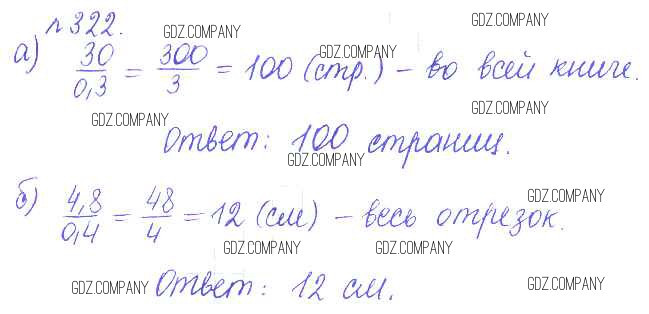 №322.
а) 30/0,3 = 300/3 = 100 (стр.) – во всей книге.
Ответ: 100 страниц.
б) 4,8/0,4 = 48/4 = 12 (см) – весь отрезок.
Ответ: 12 см.
GDZ.COMPANY
GDZ.COMPANY
GDZ.COMPANY
GDZ.COMPANY
GDZ.COMPANY
GDZ.COMPANY
GDZ.COMPANY
GDZ.COMPANY
GDZ.COMPANY
GDZ.COMPANY
GDZ.COMPANY